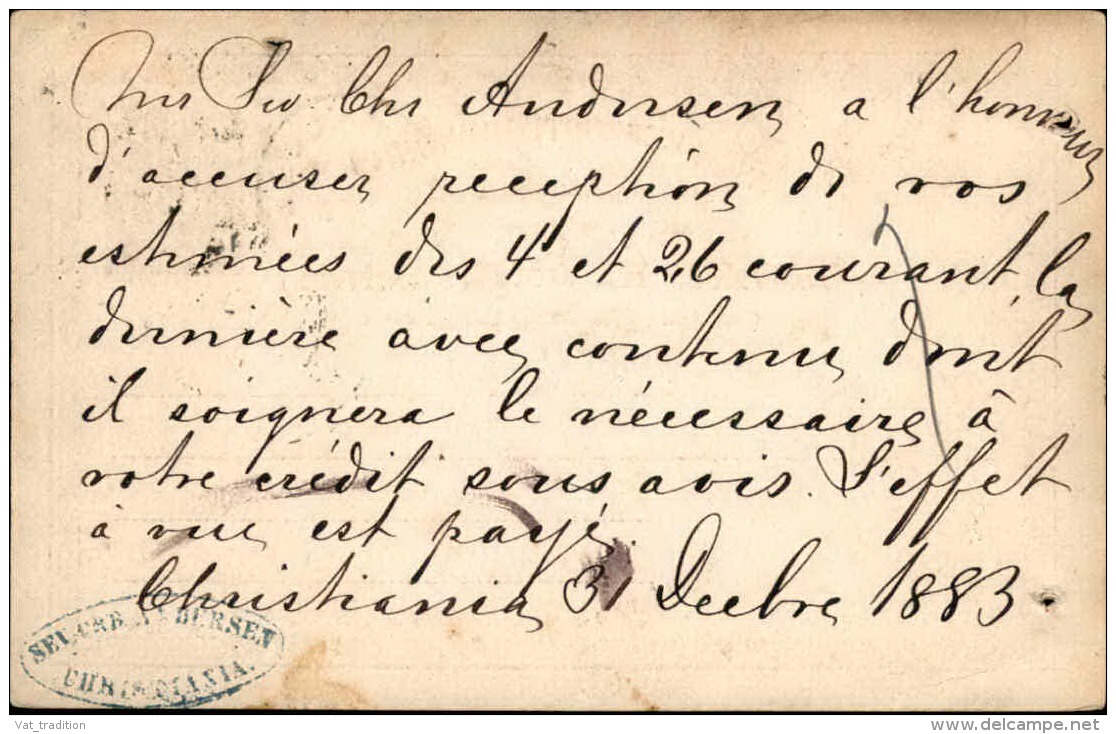 Mr Sev Chr Andersen a l'honneur
d'accuser reception de vos
estimées des 4 et 26 courant, la
dernière avec contenu dont
il soignera le nécessaire à
votre crédit sous avis. L'effet
à vue est payé.
Christiania 31 Decbre 1883.
SEV. CHR. ANDERSEN
CHRISTIANIA.
Vat_tradition
delcampe.net